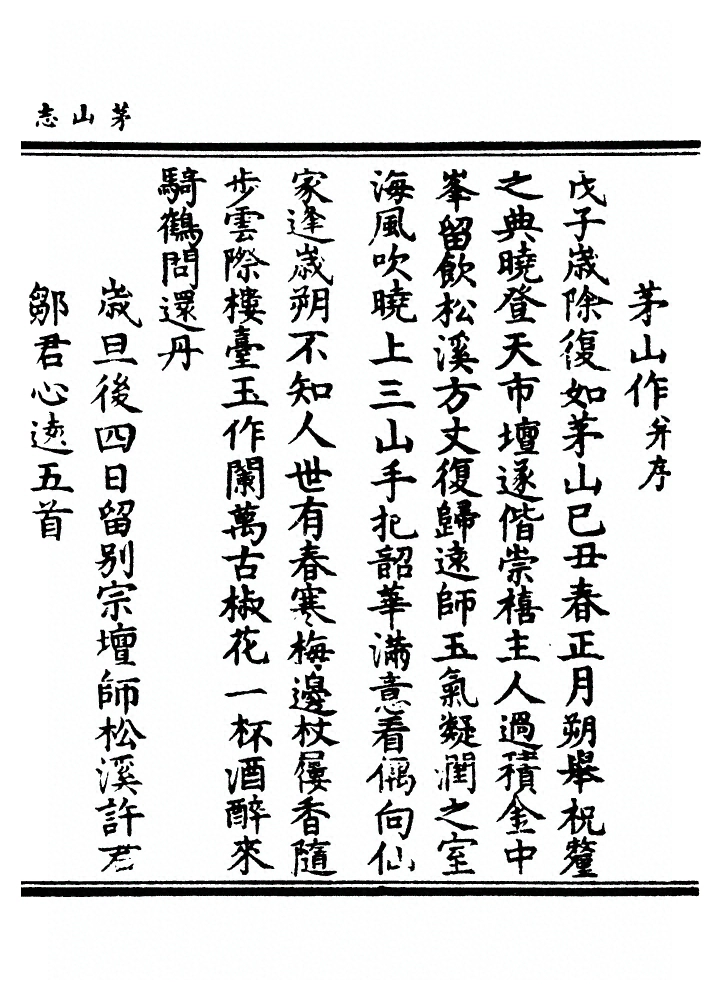 茅山志
茅山作并序
戊子歲除復如茅山巳丑春正月朔舉祝釐
之典曉登天市壇遂偕崇禧主人過積金中
峯留飲松溪方丈復歸遠師玉氣凝潤之室
海風吹曉上三山手把韶華滿意看偶向仙
家逢歲朔不知人世有春寒梅邊杖屨香隨
步雲際樓臺玉作闌萬古椒花一杯酒醉來
騎鶴問還丹
歲旦後四日留别宗壇師松溪許君
鄒君心遠五首